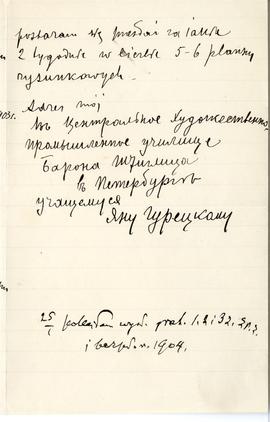 postaram się przesłać za jakie
2 tygodnie w liczbie 5-6 planów
rysunkowych.
Adres mój
въ Центральное Художественно
Промышленное училище
Барона Штиглица
в Петербургѣ
учащемуся
Яну Гурецкому
25/I
i 1904.